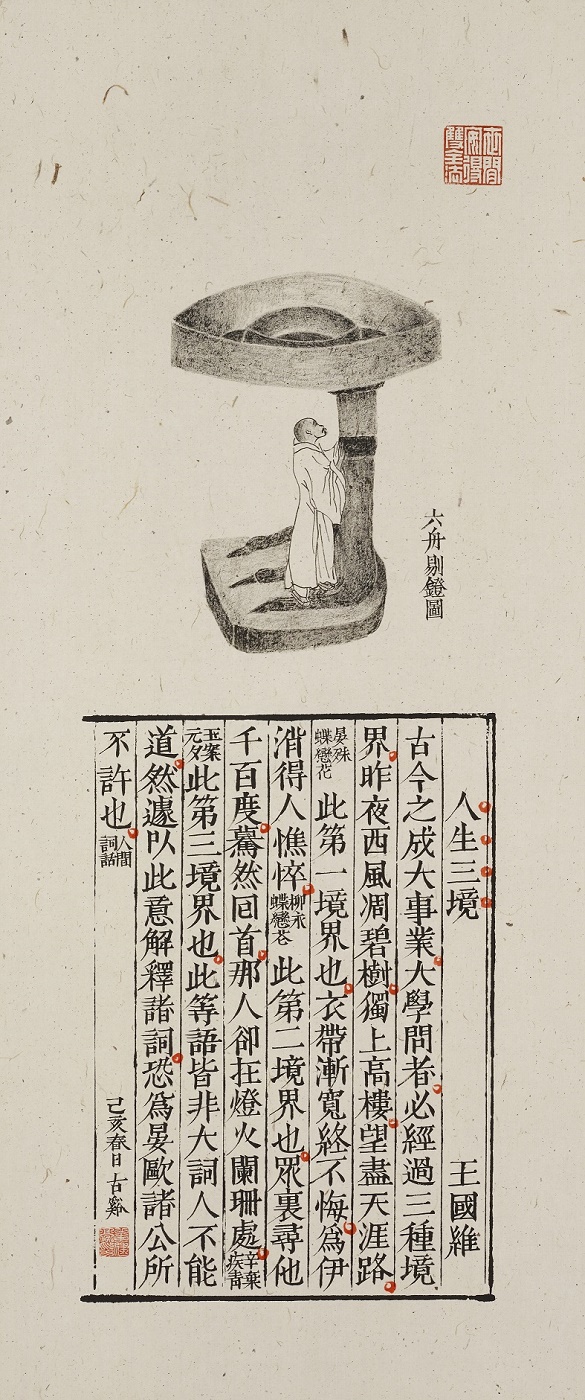 世間安得雙全法
六舟剔鐙圖
人生三境 王國維
古今之成大事業大學問者必經過三種境
界昨夜西風凋碧樹獨上高樓望盡天涯路
晏殊蝶戀花 此第一境界也衣帶漸寬終不悔爲伊
消得人憔悴柳永蝶戀花 此第二境界也眾裏尋他
千百度驀然回首那人卻在燈火闌珊處辛棄疾青
玉案元夕此第三境界也此等語皆非大詞人不能
道然遽以此意解釋諸詞恐爲晏歐諸公所
不許也人間詞話 己亥春日 古谿